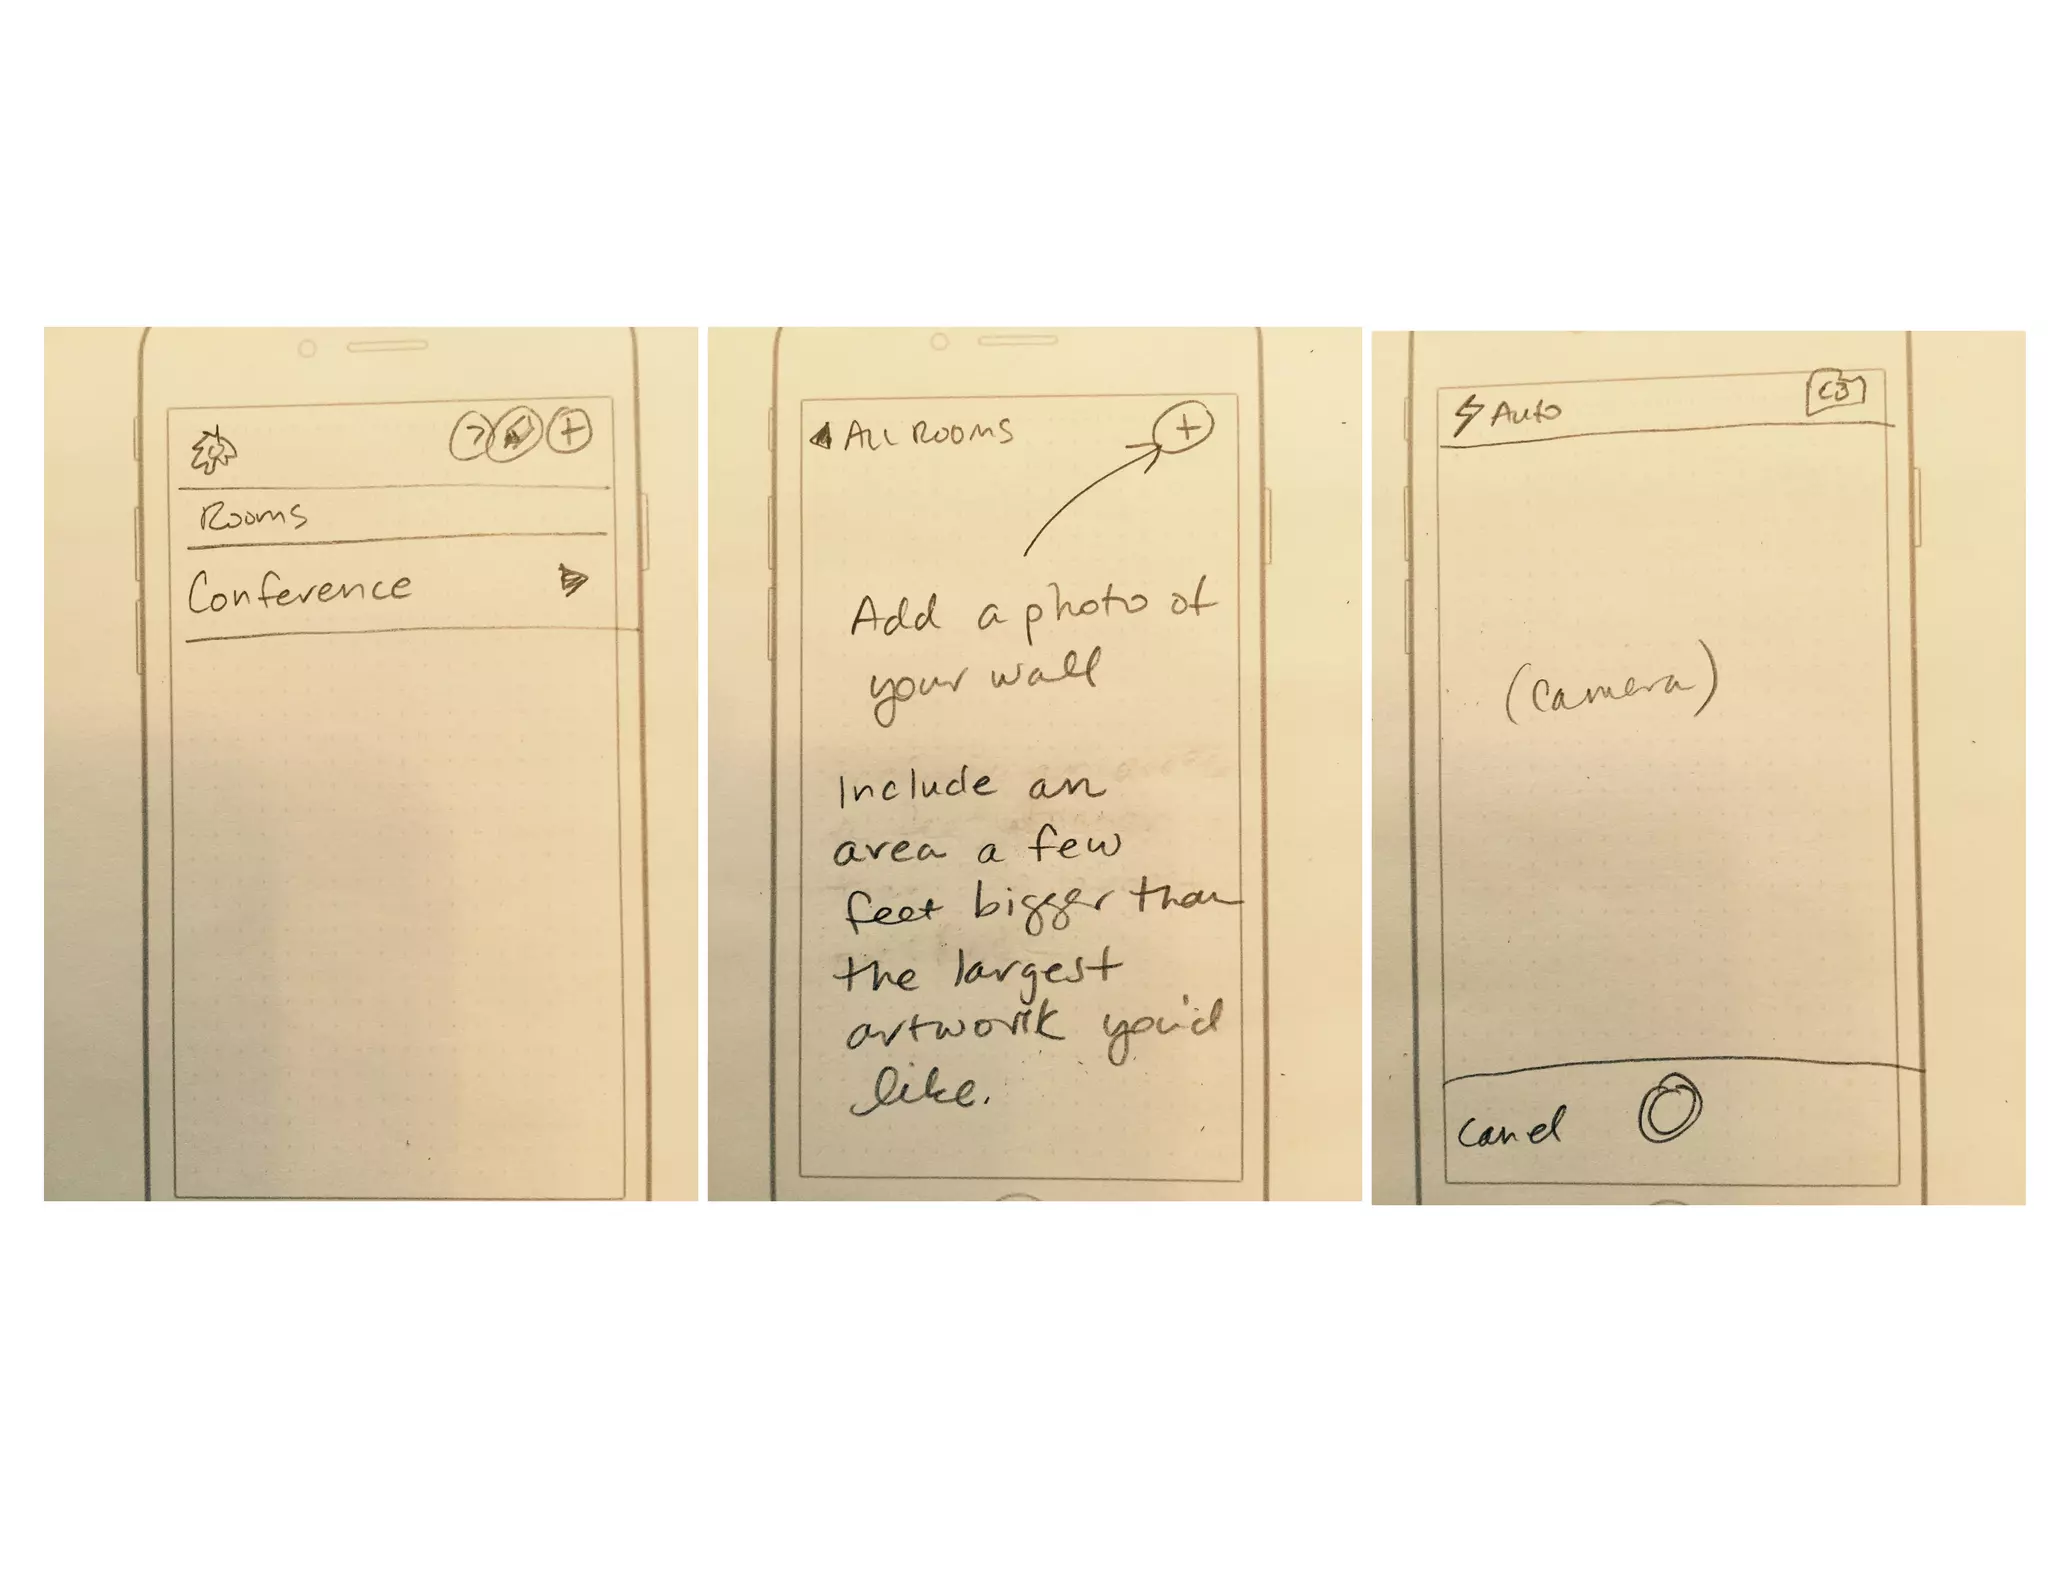 ?
+
Rooms
Conference
ALL ROOMS
+
Add a photo of
your wall
Include an
area a few
feet bigger than
the largest
artwork you'd
like.
Auto
(Camera)
Cancel